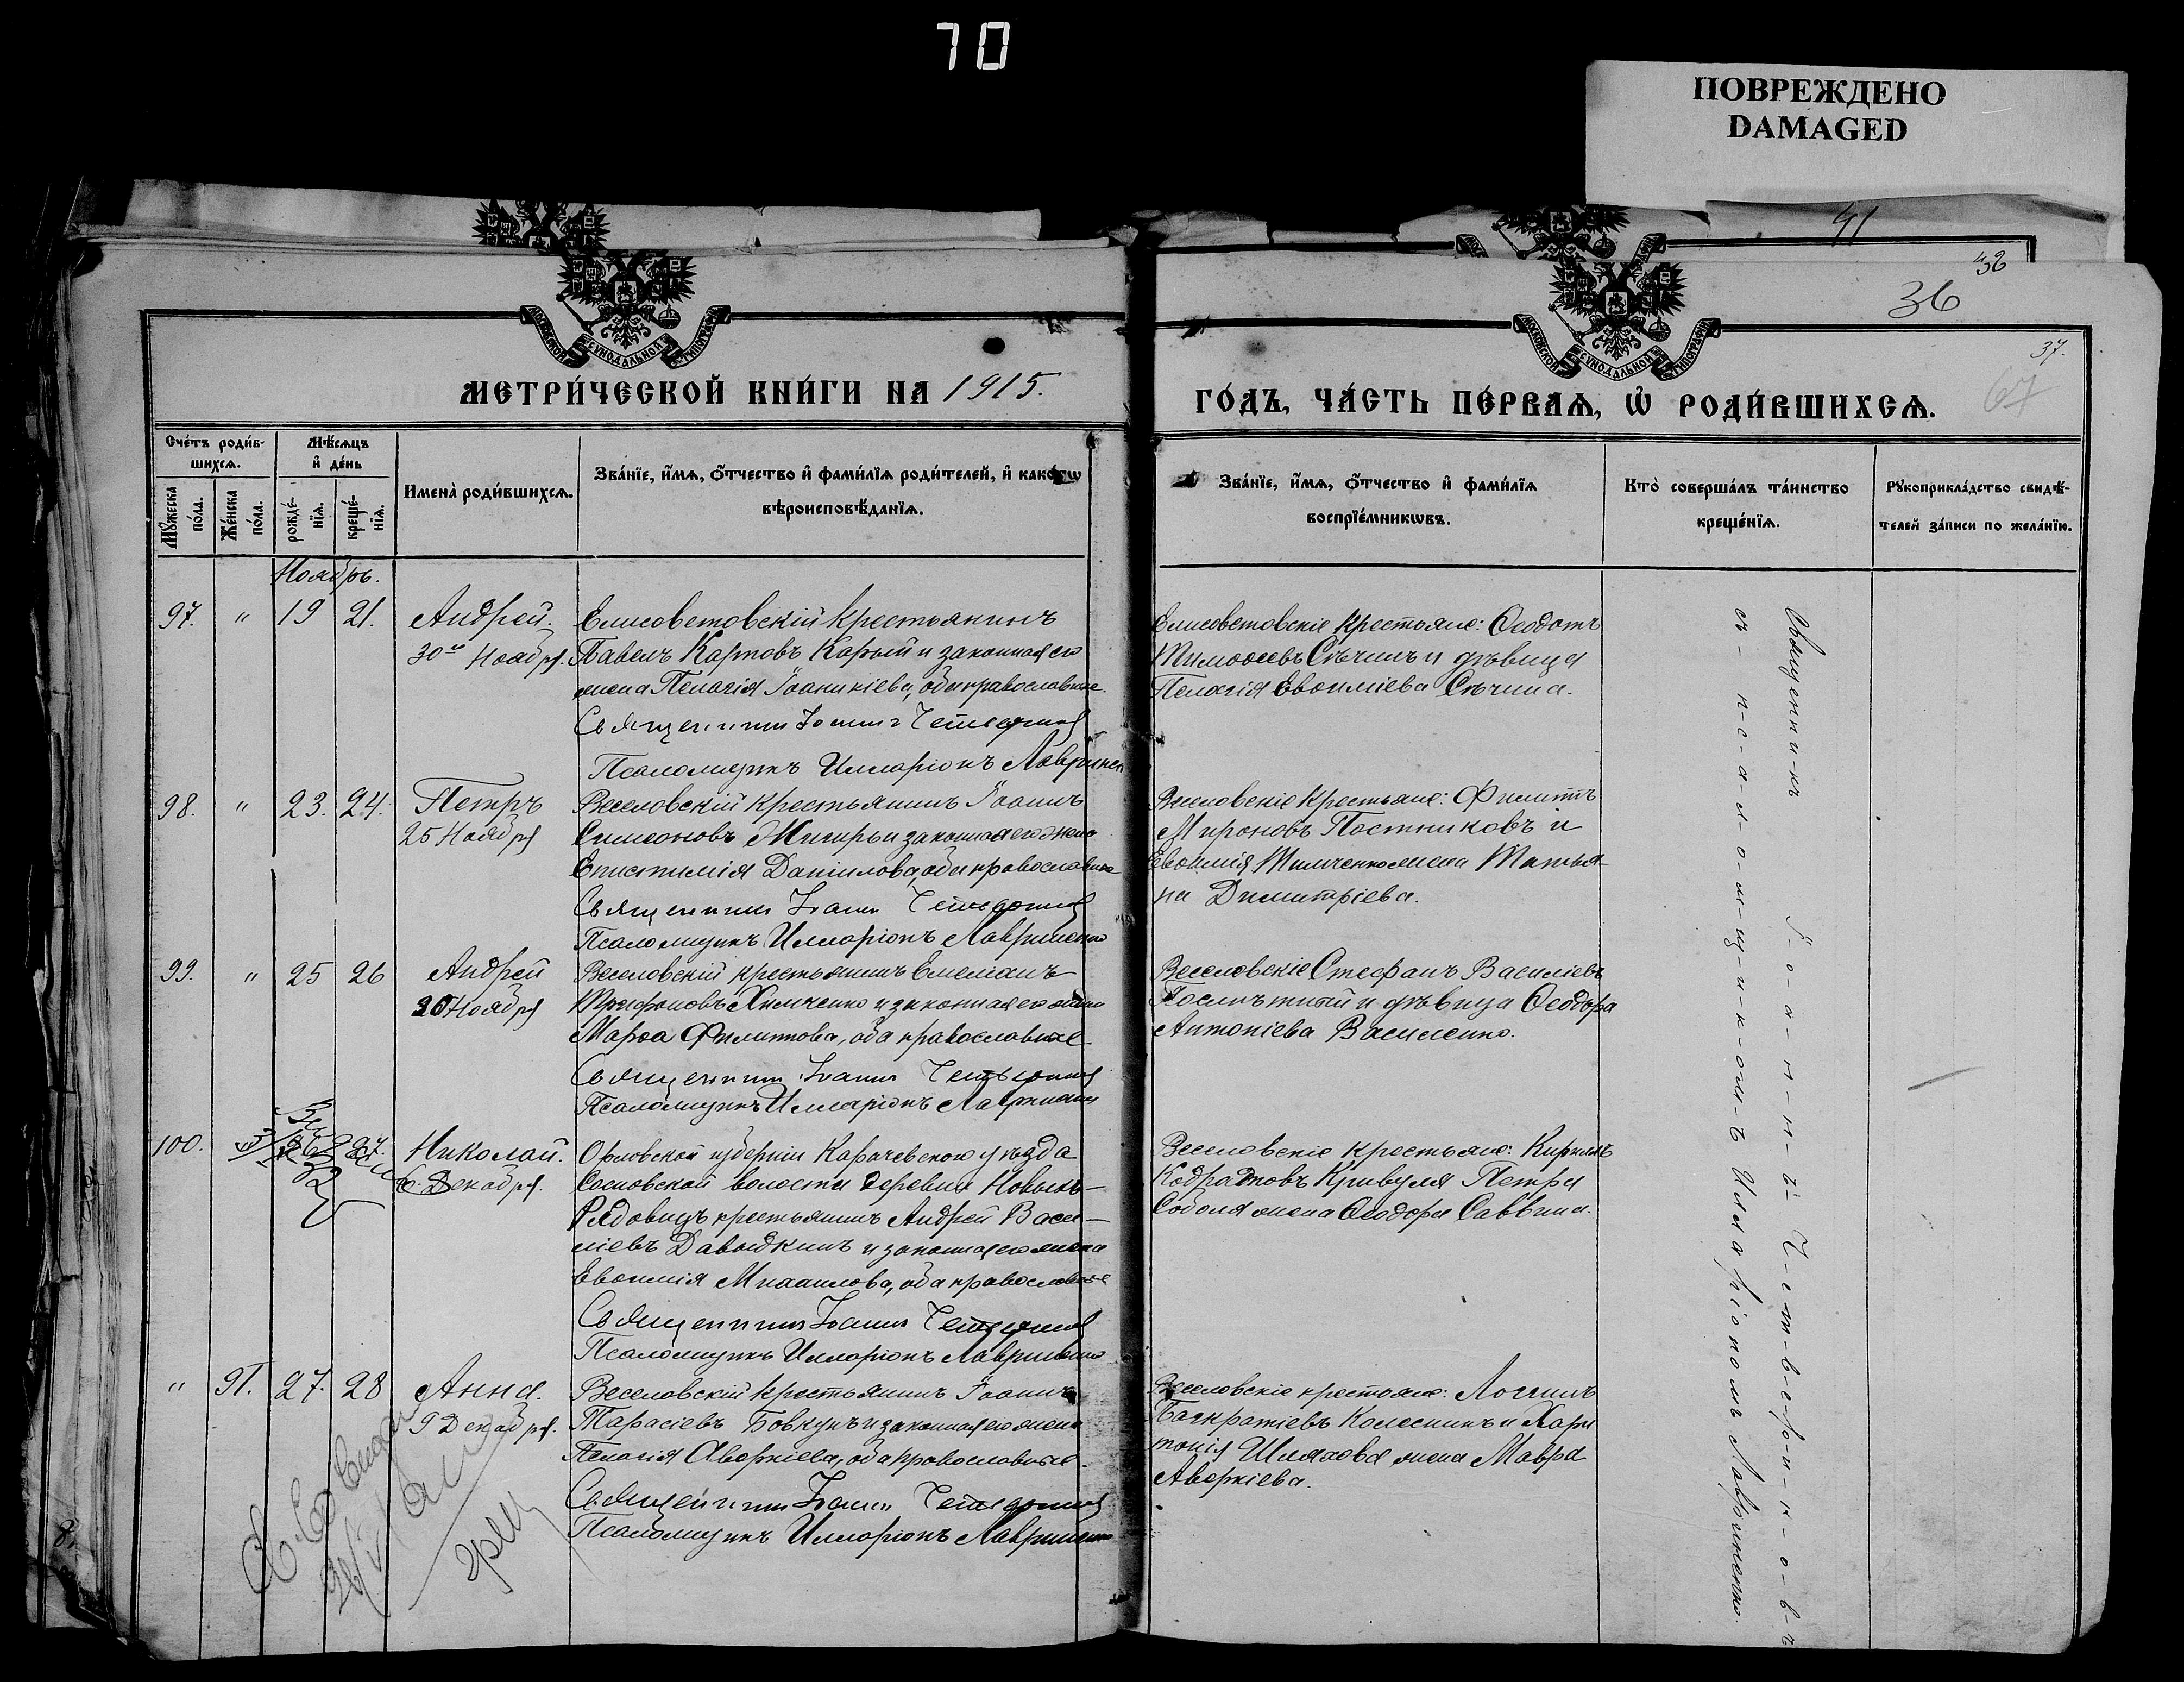 70
ПОВРЕЖДЕНО
DAMAGED
41
36
37.
67
МОСКОВСКОЙ СУНОДАЛЬНОЙ ТИПОГРАФІИ
МОСКОВСКОЙ СУНОДАЛЬНОЙ ТИПОГРАФІИ
МЕТРИ́ЧЕСКОЙ КНИ́ГИ НА 1915.
ГО́ДЪ, ЧА́СТЬ ПЕ́РВАѦ, Ѡ҆ РОДИ́ВШИХСѦ.
Сче́тъ роди́в-
шихсѧ.
Мѣ́сѧцъ
и҆ де́нь
Мꙋ́жеска по́ла.
Же́нска по́ла.
рожде́-нїѧ.
креще́-нїѧ.
Имена̀ роди́вшихсѧ.
Зва́нїе, и҆́мѧ, ѻ҆́тчество и҆ фами́лїѧ роди́телей, и҆ како́гѡ
вѣроисповѣ́данїѧ.
Зва́нїе, и҆́мѧ, ѻ҆́тчество и҆ фами́лїѧ
воспрїе́мникѡвъ.
Кто̀ соверша́лъ та́инство
креще́нїѧ.
Рꙋкоприкла́дство свидѣ́-
телей за́писи по жела́нїю.
Ноябрь.
97. " 19 21. Андрей.
30го Ноября.
Елисоветовскій крестьянинъ
Павелъ Карповъ Карый и законная его
жена Пелагія Іоаникіева, оба православные.
Священникъ Іоаннъ Четвериковъ
Псаломщикъ Илларіонъ Лавриненко
Елисоветовскіе крестьяне: Ѳеодотъ
Тимоѳеевъ Сѣчинъ и дѣвица
Пелагія Евѳиміева Сѣчина.
98. " 23. 24. Петръ
25 Ноября
Веселовскій крестьянинъ Іоаннъ
Симеоновъ Жигирь и законная его жена
Епистимія Даніилова, оба православные
Священникъ Іоаннъ Четвериковъ
Псаломщикъ Илларіонъ Лавриненко
Веселовскіе крестьяне: Филиппъ
Мироновъ Постниковъ и
Евѳимія Тимченко жена Татья-
на Димитріева.
99. " 25 26 Андрей
30 Ноября
Веселовскій крестьянинъ Емеліанъ
Трифоновъ Химченко и законная его жена
Марѳа Филиппова, оба православные.
Священникъ Іоаннъ Четвериковъ
Псаломщикъ Илларіонъ Лавриненко
Веселовскіе Стефанъ Василіевъ
и дѣвица Ѳеодора
Антоніева Василенко.
100. 26 27. Николай.
6 Декабря.
Орловской губерніи Карачевскаго уѣзда
Сосновской волости деревни Новыхъ-
Рядовицъ крестьянинъ Андрей Васи-
ліевъ Давыдкинъ и законная его жена
Евѳимія Михаилова, оба православные
Священникъ Іоаннъ Четвериковъ
Псаломщикъ Илларіонъ Лавриненко
Веселовскіе крестьяне: Кириллъ
Кодратовъ Кривуля Петра
Соболя жена Ѳеодора Саввина.
" 91. 27. 28 Анна.
9 Декабря.
Веселовскій крестьянинъ Іоаннъ
Тарасіевъ Бовкунъ и законная его жена
Пелагія Аверкіева, оба православные.
Священникъ Іоаннъ Четвериковъ
Псаломщикъ Илларіонъ Лавриненко
Веселовскіе крестьяне: Логинъ
Панкратіевъ Колесникъ и Хари
тонія Шляхова жена Мавра
Аверкіева.
Священникъ Іоаннъ Четвериковъ
съ псаломщикомъ Иларіономъ Лавриненко.